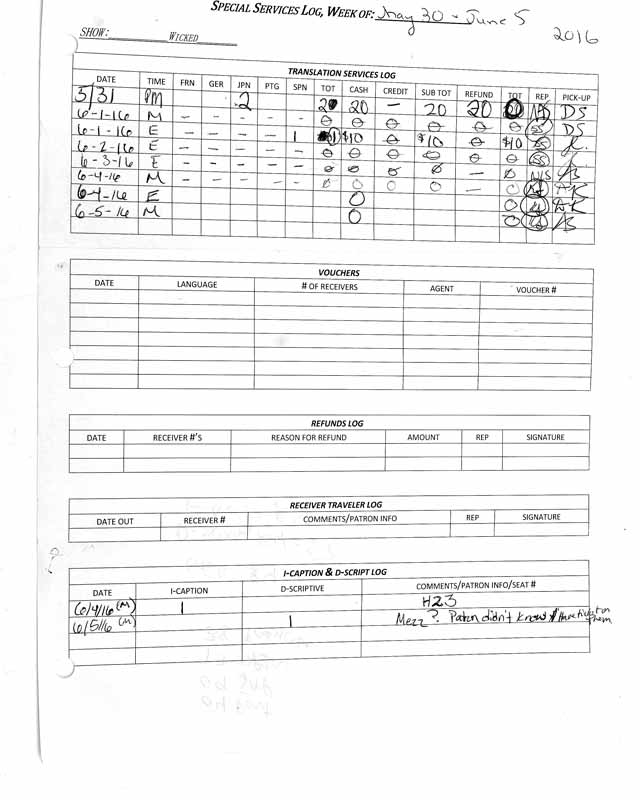 SPECIAL SERVICES LOG, WEEK OF: May 30 - June 5
2016
SHOW: WICKED
TRANSLATION SERVICES LOG
DATE TIME FRN GER JPN PTG SPN TOT CASH CREDIT SUB TOT REFUND TOT REP PICK-UP
5/31 PM 2 20 — 20 20 DS
6-1-16 M – – – – – 0 0 0 0 0 0 DS
6-1-16 E – – – – 1 $10 0 $10 0 $10
6-2-16 E – – – – – 0 0 0 0 0 0
6-3-16 E – – – – – 0 0 0 0 – 0 N/S
6-4-16 M – – – – – 0 0 0 0 – 0
6-4-16 E 0 0
6-5-16 M 0 0
VOUCHERS
DATE LANGUAGE # OF RECEIVERS AGENT VOUCHER #
REFUNDS LOG
DATE RECEIVER #'S REASON FOR REFUND AMOUNT REP SIGNATURE
RECEIVER TRAVELER LOG
DATE OUT RECEIVER # COMMENTS/PATRON INFO REP SIGNATURE
I-CAPTION & D-SCRIPT LOG
DATE I-CAPTION D-SCRIPTIVE COMMENTS/PATRON INFO/SEAT #
6/4/16 (M) 1 H23
6/5/16 (M) 1 Mezz ? Patron didn't know # Have tix on them